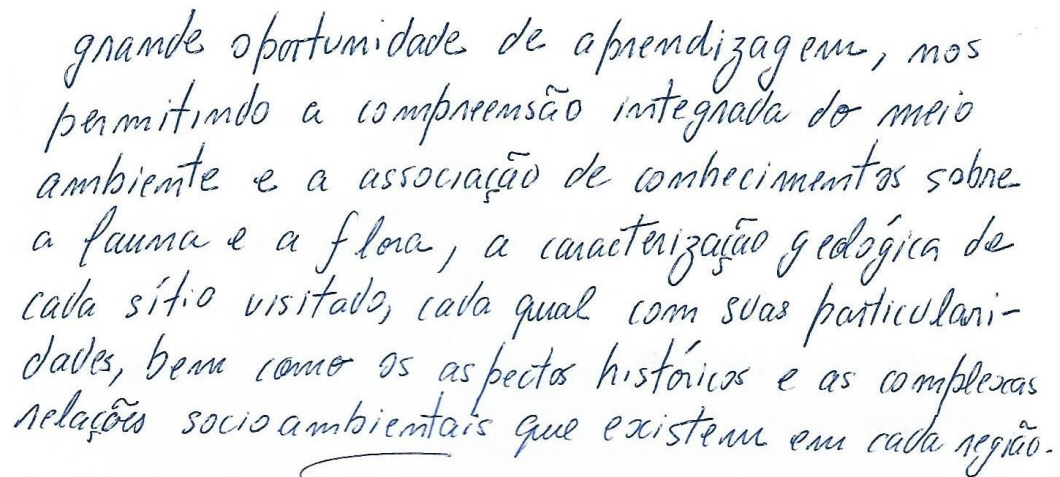 grande oportunidade de aprendizagem, nos
permitindo a compreensão integrada do meio
ambiente e a associação de conhecimentos sobre
a fauna e a flora, a caracterização geológica de
cada sítio visitado, cada qual com suas particulari-
dades, bem como os aspectos históricos e as complexas
relações socioambientais que existem em cada região.